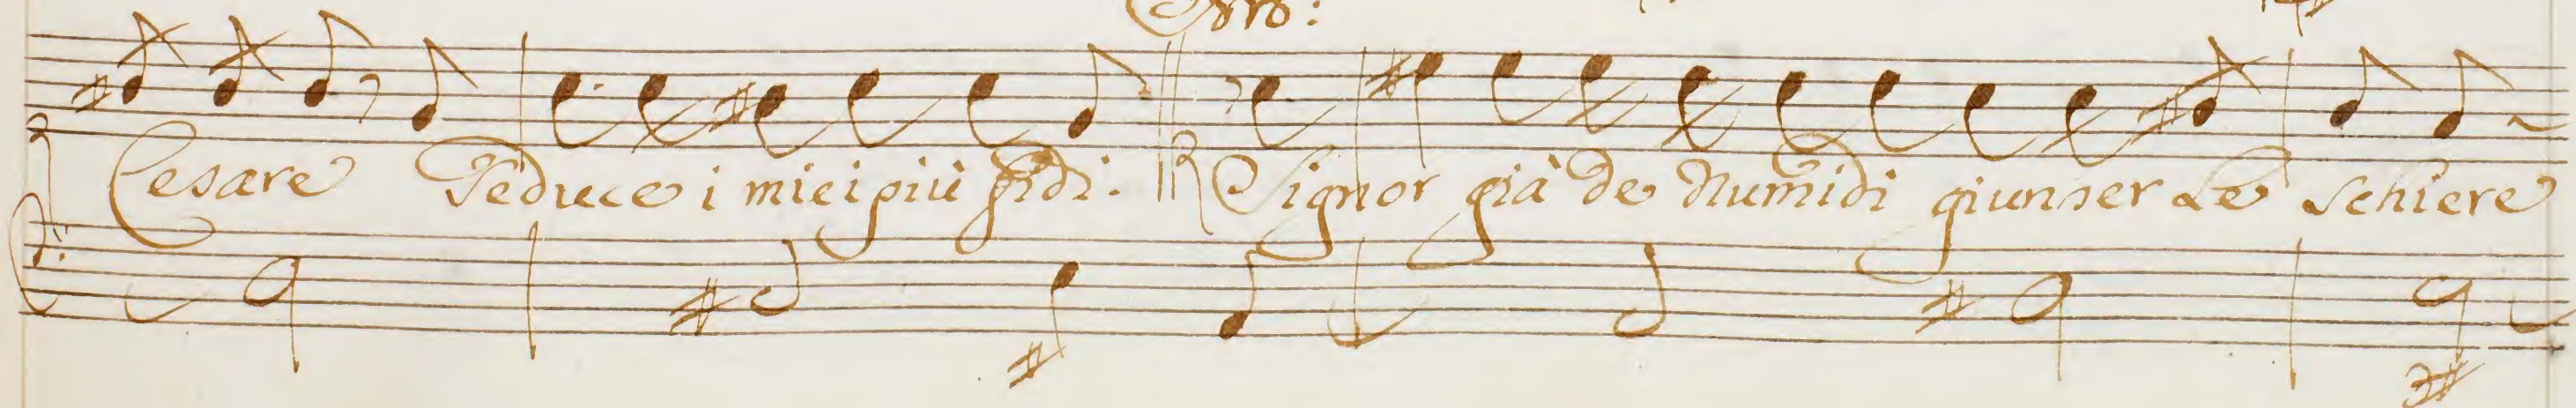 Cesare Seduce i miei più fidi. Signor già de Numidi giunser Le Schiere